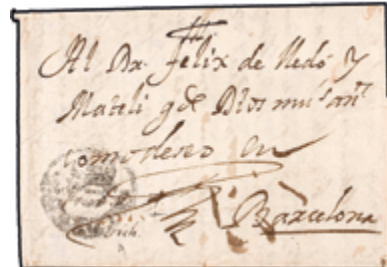 Al Dr. Felix de Nedó y
Mateli gde Dios mus ans
como deseo en
Barcelona